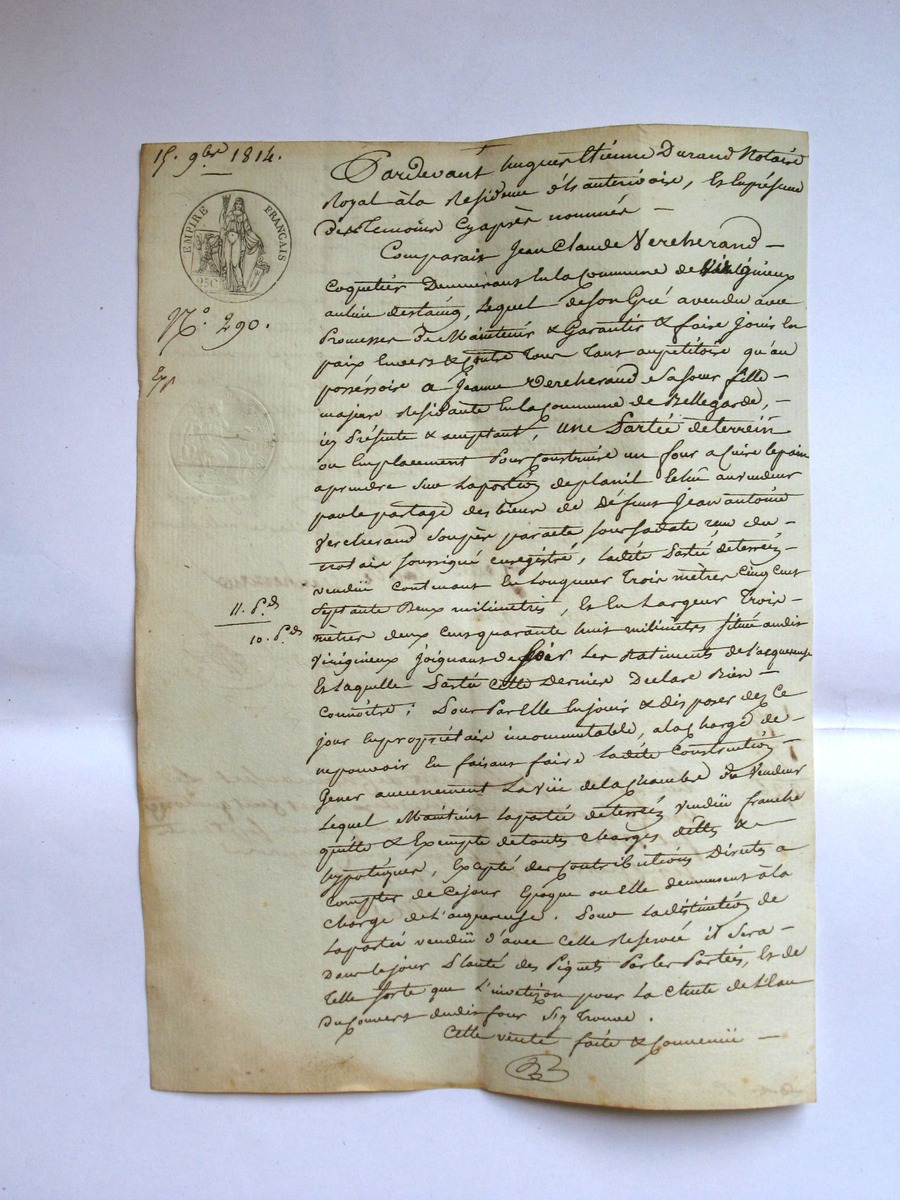 15. 9bre 1814.
EMPIRE FRANÇAIS
25C
N.° 290.
Exp
11. p.ds
10. p.ds
Pardevant hugues Etienne Durand Notaire
Royal à la Residence de , Et En présence
Des Temoins Cyaprès nommés —
Comparait Jean Claude Vercherand —
Coquetier Demeurant En la Commune de Virigneux
au lieu destaing, Lequel de Son Gré a vendu avec
Promesses De Maintenir & Garantir & faire Jouir En
paix Envers & Contre Tous Tant au petitoire qu'au
posséssoire a Jeanne Vercherand Sa sœur fille —
majeure Residante En la Commune de Bellegarde, —
icy Présente & acceptant, une Partie de terrein
ou Emplacement Pour Construire un four a Cuire le pain
a prendre Sur La portion de plassil Echue au vendeur
par le partage des biens de Défunt Jean antoine
Vercherand Son père par acte Sous Sa date reçu du —
notaire soussigné enregistré, La dite Partie de terrein
vendüe Contenant En Longueur Trois mètres Cinq Cent
Septante Deux milimetres, Et En Largeur Trois —
mètres deux Cent quarante huit milimètres située audit
Virigneux Joignant de Soir Les Batiments de l'acquereuse
Et Laquelle Partie Cette Derniere Declare Bien —
Connoître; Pour Par Elle En jouir & disposer dez Ce
jour En propriétaire incommutable, a la Charge de —
ne pouvoir En faisant faire La dite Construction —
Gener aucunement La vüe de la Chambre du Vendeur
Lequel Maintient La portion de terrein vendüe franche
quitte & Exempte de toutes Charges dettes & —
hypotèques, Excepté des Contributions Directes a
Compter de Ce jour Epoque ou Elle demeurent à la
Charge de L'acquereuse. Pour La distinction de
La portion vendüe d'avec Celle Reservée il Sera —
Dans le jour Planté des Piquets Par les Parties, Et de
Telle Sorte que pour La Chute de L'Eau
Du Couvert dudit four S'y Trouve.
Cette vente faite & Convenüe —